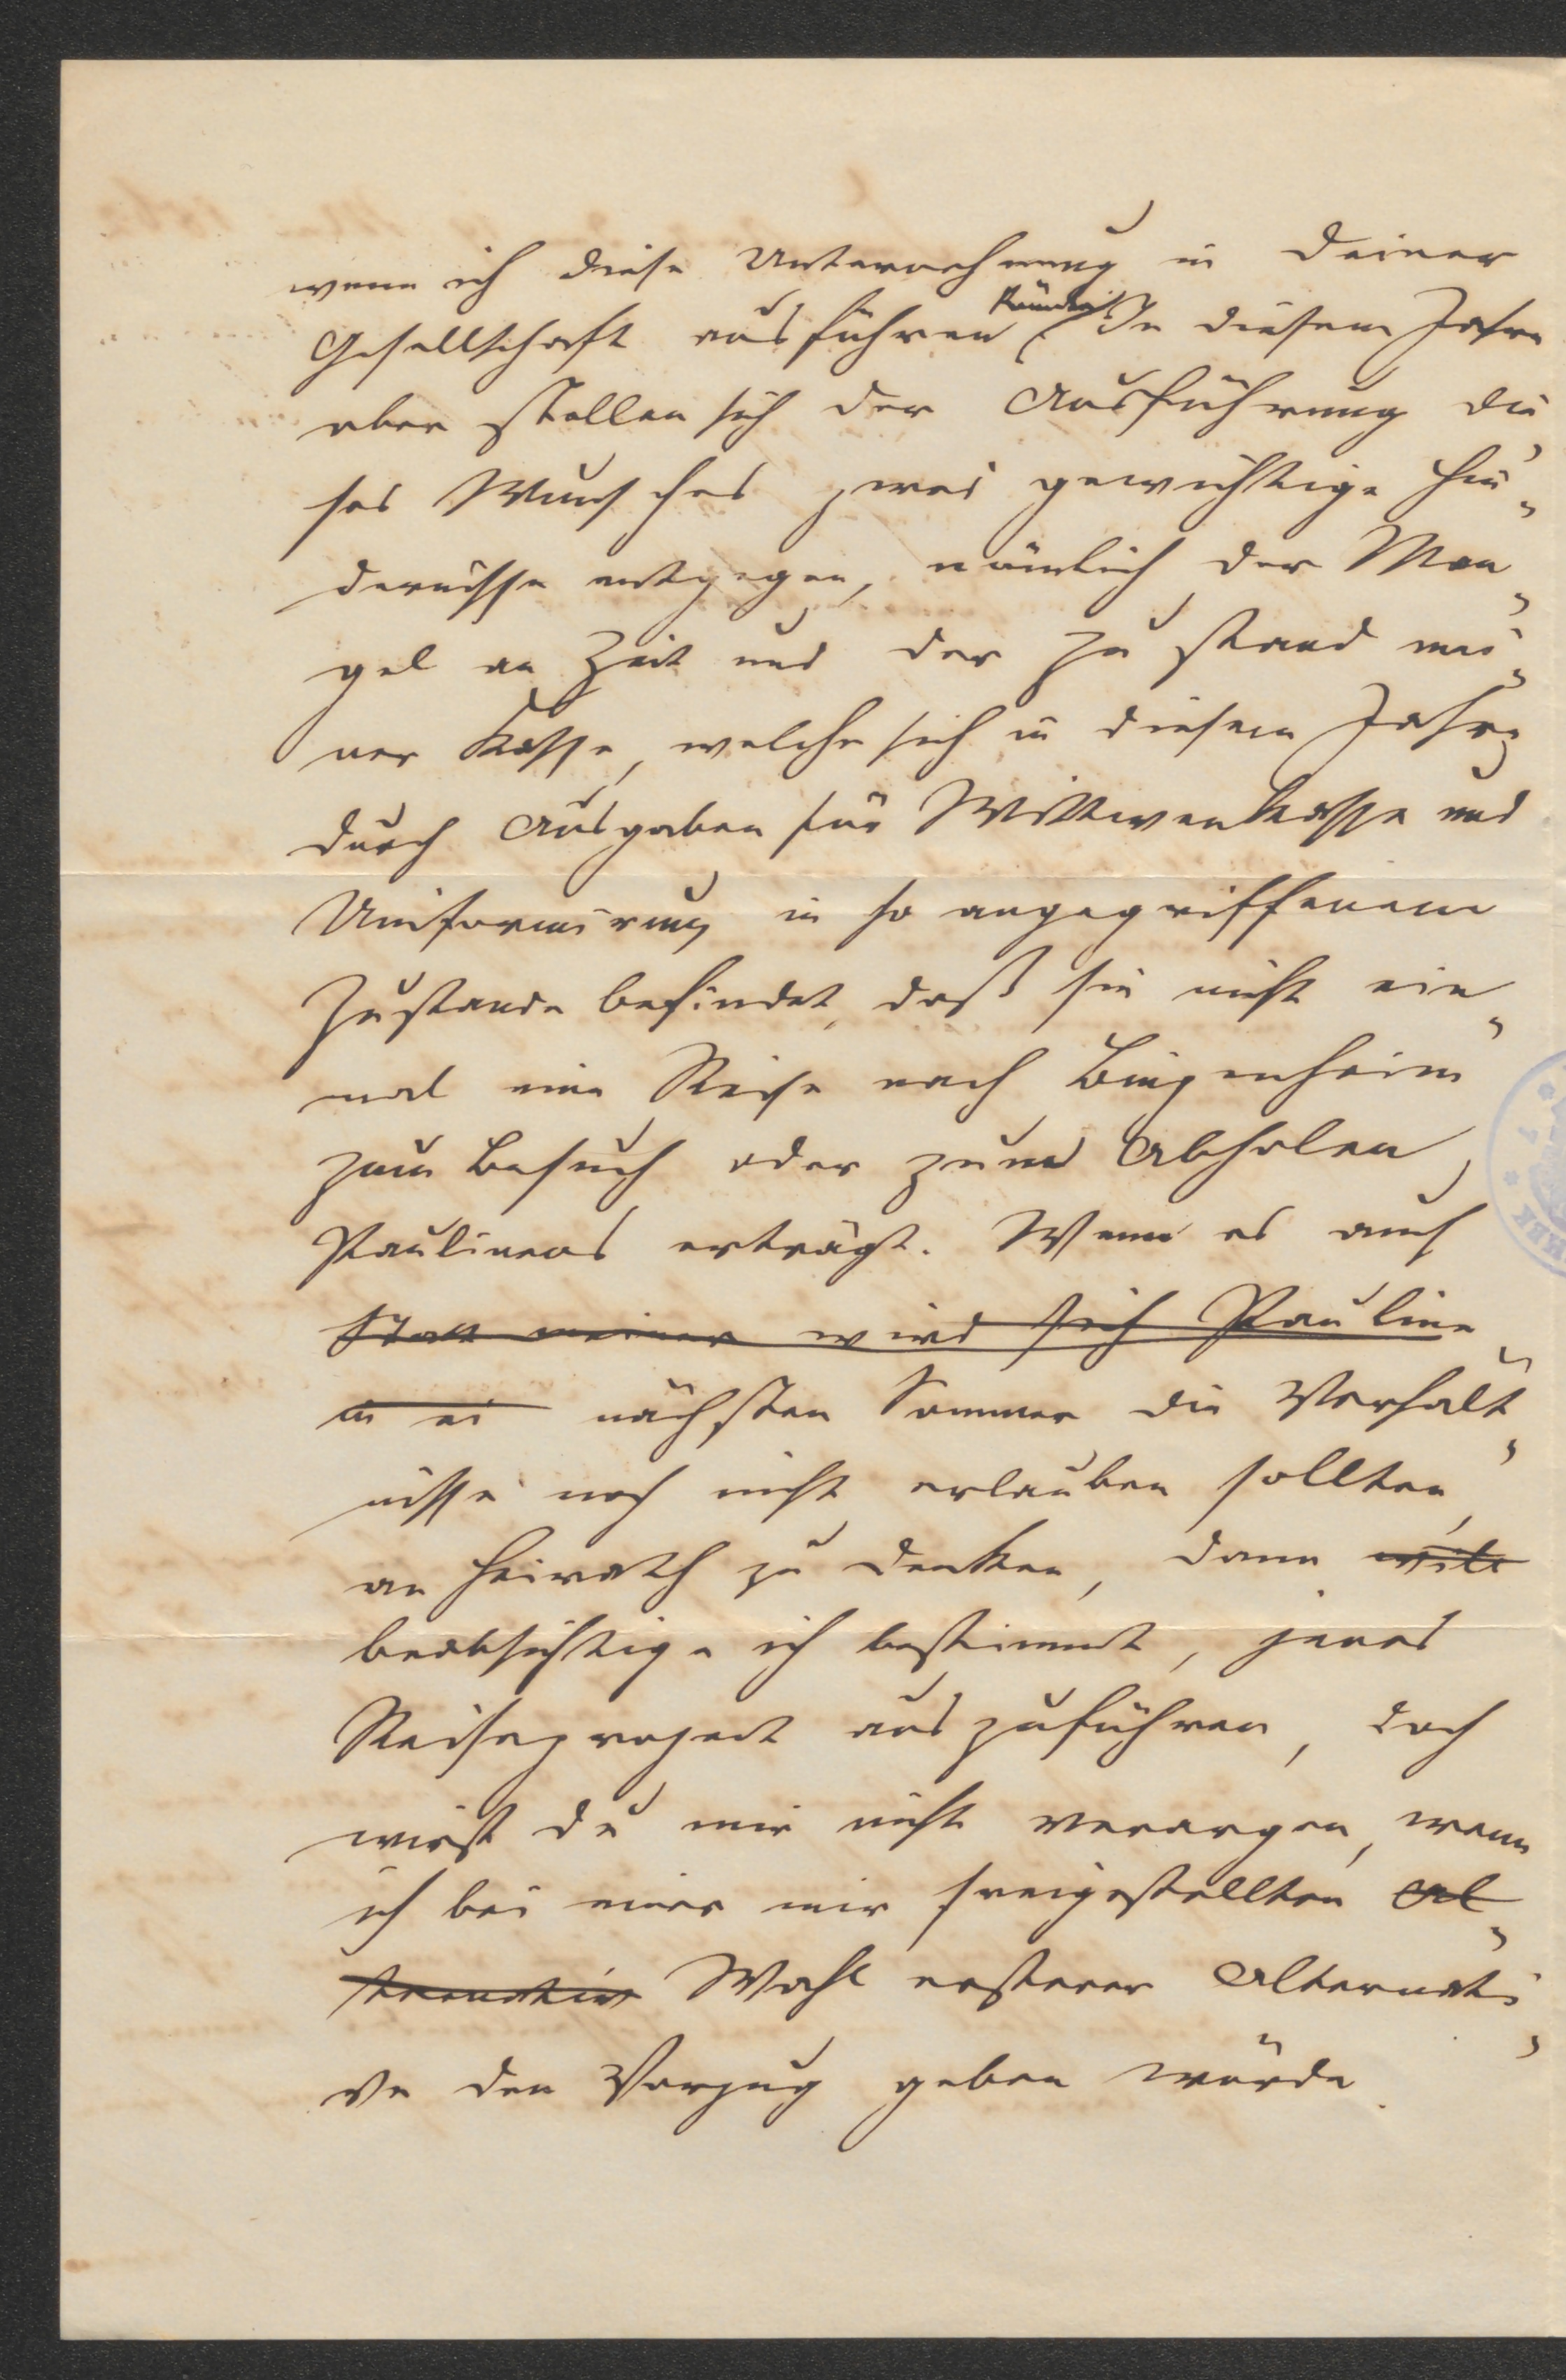 wenn ich diese Unternehmung in Deiner
Gesellschaft ausführen könnte. In diesem Jahre
aber stellen sich der Ausführung die
ses Wunsches zwei gewichtige Hin„
dernisse entgegen, nämlich der Man„
gel an Zeit und der Zustand mei„
ner Kasse, welche sich in diesem Jahre
durch Ausgaben für Wittwenkasse und
Uniformirung in so angegriffenem
Zustande befindet, daß sie nicht ein„
mal eine Reise nach Bingenheim
zum Besuch oder zum Abholen
Paulinens erträgt. Wenn es auch
Statt meiner wird sich Pauline
in ei nächsten Sommer die Verhält„
nisse noch nicht erlauben sollten,
an Heirath zu denken, dann will
beabsichtige ich bestimmt, jenes
Reiseproject auszuführen, doch
wirst du mir nicht verargen, wenn
ich bei einer mir freigestellten Al„
ternative Wahl ersterer Alternati„
ve den Vorzug geben würde.